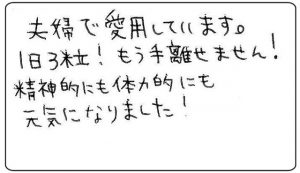 夫婦で愛用しています。
1日3粒！もう手離せません！
精神的にも体力的にも
元気になりました！